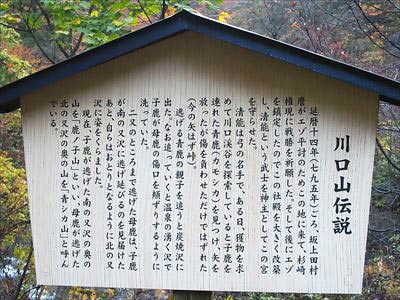 川口山伝説
延暦十四年(七九五年)ごろ、坂上田村
麿がエゾ平討のためこの地に来て、杉崎
権現に戦勝を祈願した。そして後にエゾ
を鎮定したのでこの社殿を大きく改築
し、清能という武士を神主としてこの宮
を守らせた。
清能は弓の名手で、ある日、獲物を求
めて川口渓谷を探索していると子鹿を
連れた青鹿(カモシカ)を見つけ、矢を
放ったが傷を負わせただけではずれた
(今の矢はず峠)。
逃げる青鹿の親子を追うと炭焼沢に
出た。なお追って行くと温泉の湧く沢で
子鹿が母鹿の傷口を頬ずりするように
洗っていた。
二又のところまで逃げた母鹿は、子鹿
が南の又沢に逃げ延びるのを見届けた
あと、自らはおとりとなるように北の又
沢に姿をくらました。
現在、子鹿が逃げた南の又沢の奥の
山を「鹿ノ子山」といい、母鹿が逃げた
北の又沢の奥の山を「青シカ山」と呼ん
でいる。